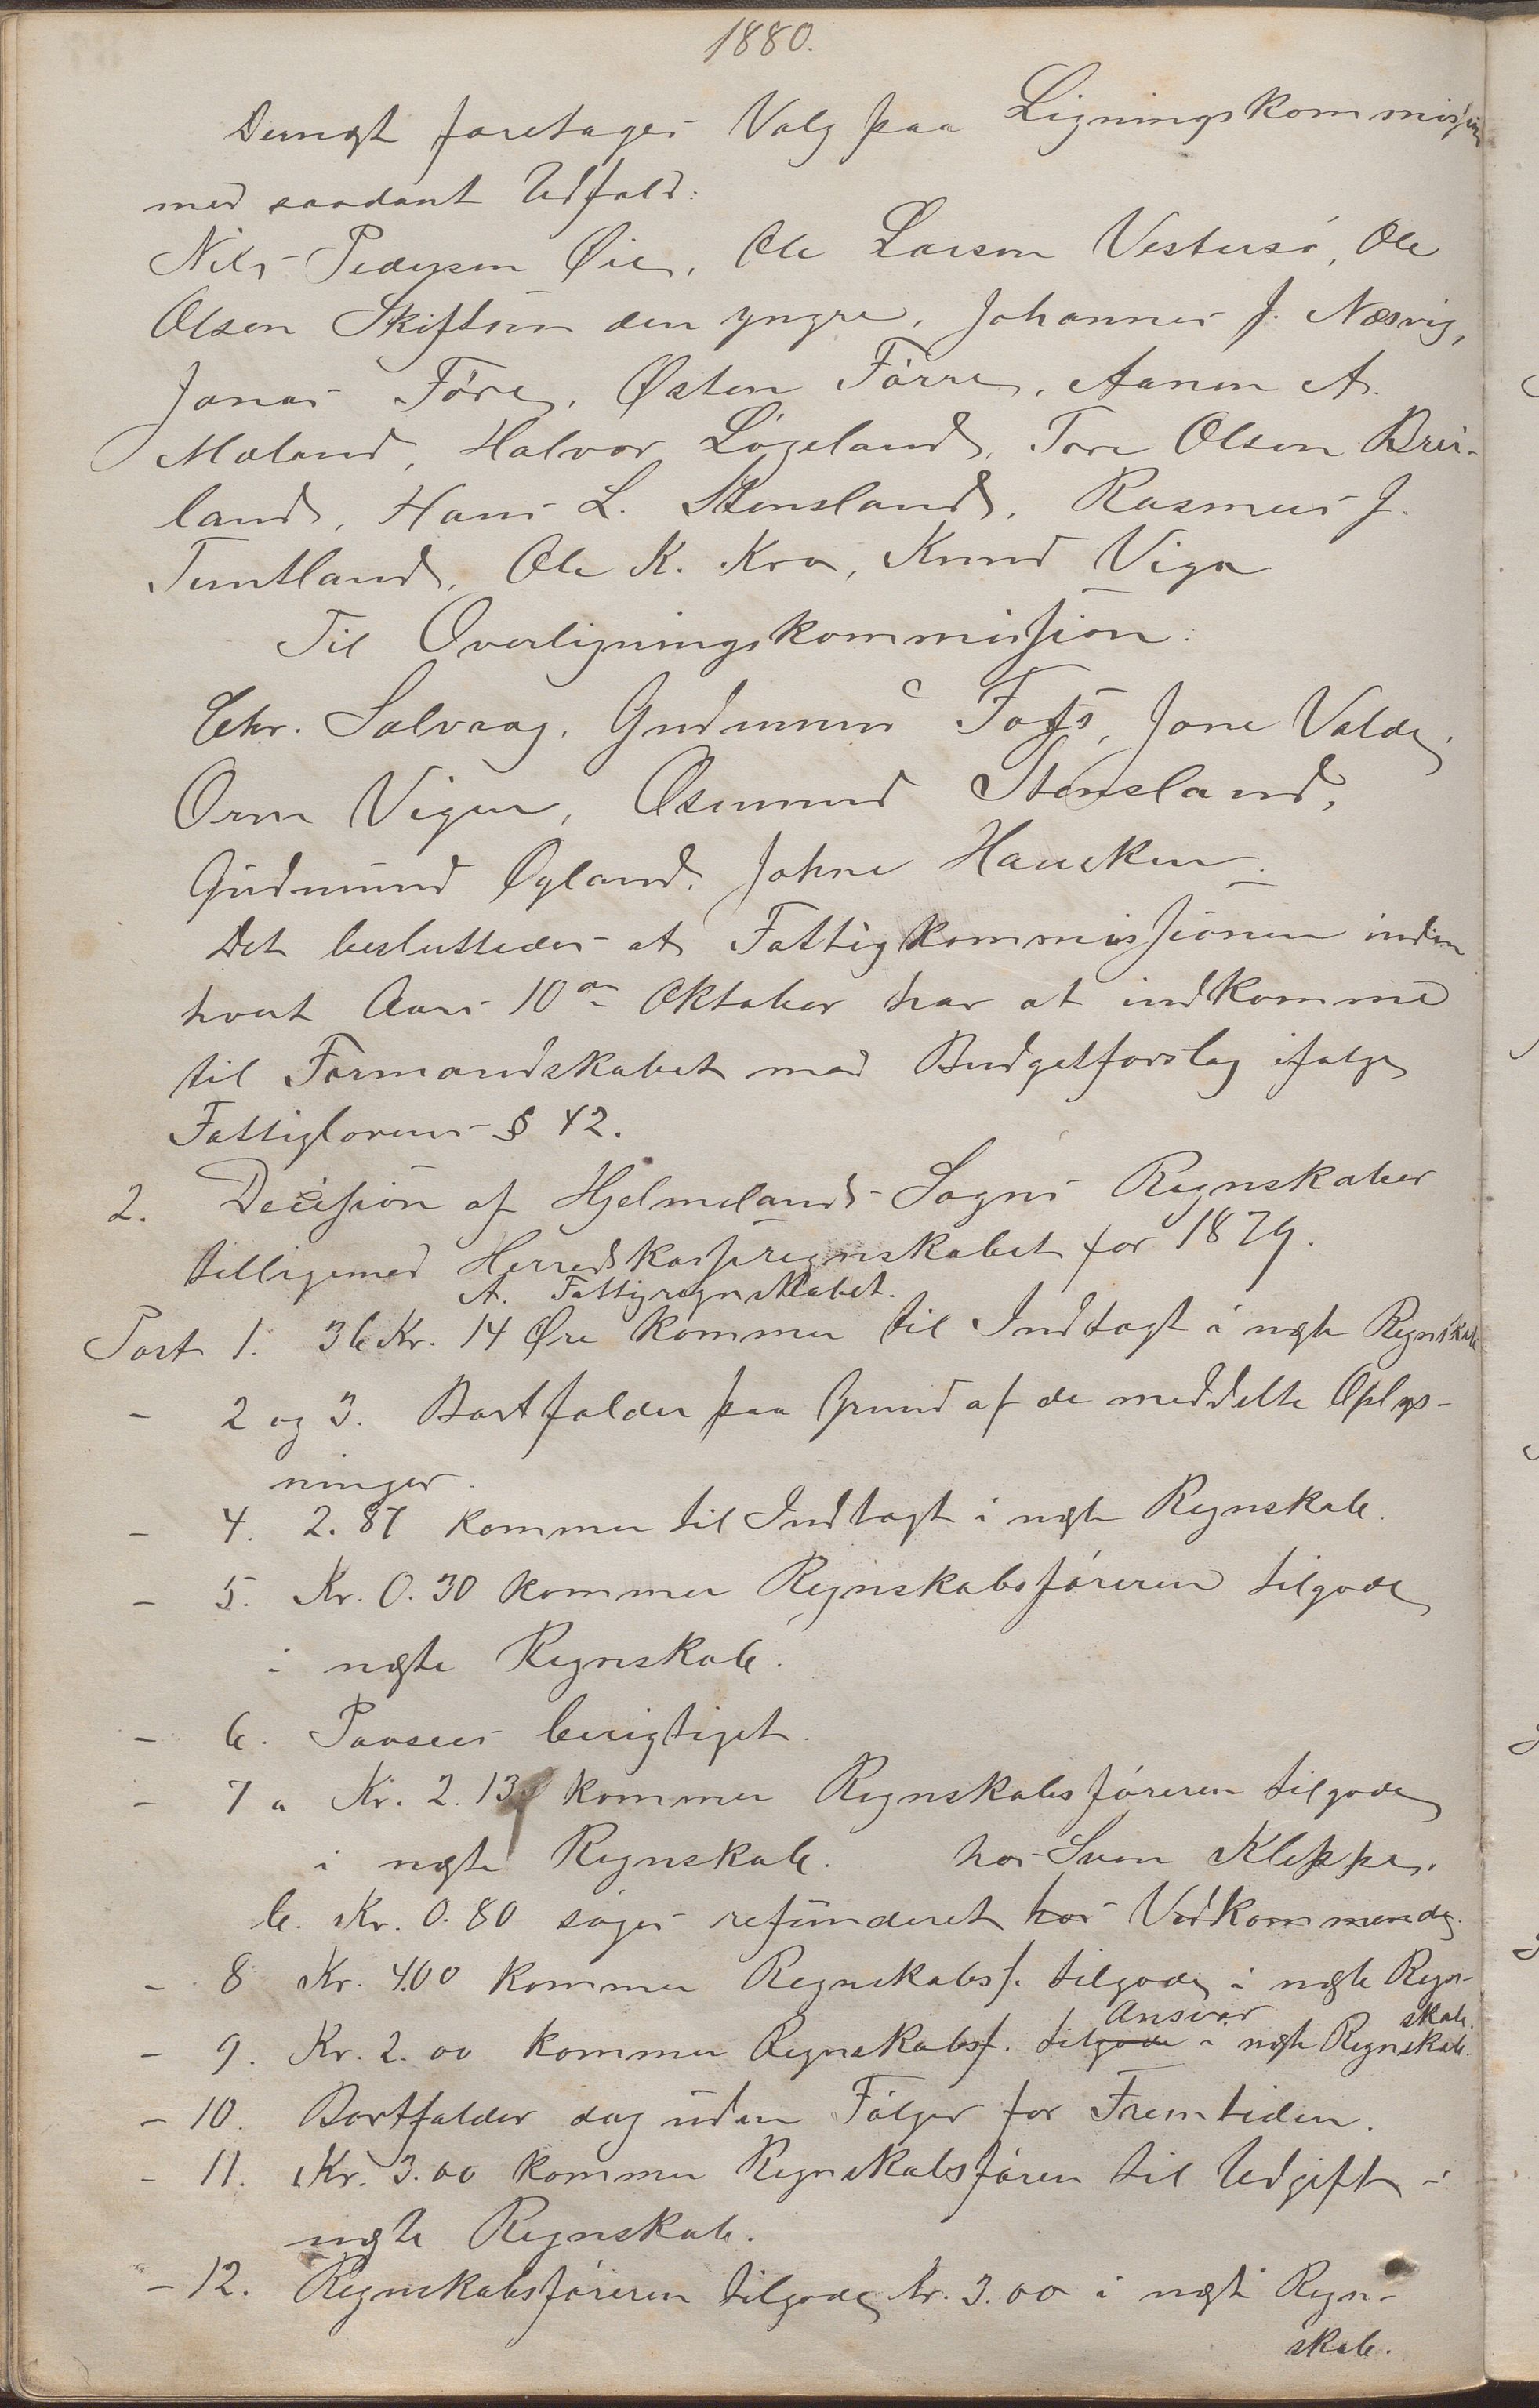 1880.
Dernæst foretages Valg paa Ligningskommission
med saadant Udfald:
Nils Pedersen Øie, Ole Larsen Vestersø, Ole
Olsen Skiftun den yngre, Johannes J. Næsvig,
Jonas Føre, Østen Førre, Aanen A.
Mæland, Halvor Løgeland, Tore Olsen Brei-
land, Hans L. Stensland, Rasmus J.
Tuntland, Ole K. Kro, Knud Viga
Til Overligningskommission:
Chr. Salvaag, Gudmund Fosså, Jone Valde,
Orm Vigen, Osmund Stensland,
Gudmund Øgland, Johne Hausken.
Det besluttedes at Fattigkommissionen inden
hvert Aars 10de Oktober har at indkomme
til Formandskabet med Budgetforslag ifølge
Fattiglovens § 42.
2. Decission af Hjelmelands Sogns Regnskaber
tilligemed Herredskasseregnskabet for 1879.
A. Fattigregnskabet.
Post 1. 36 Kr. 14 Øre kommer til Indtægt i næste Regnskab
- 2 og 3. Bortfalder paa Grund af de meddelte Oplys-
ninger.
- 4. 2.87 kommer til Indtægt i næste Regnskab.
- 5. Kr. 0.30 kommer Regnskabsføreren tilgode
i næste Regnskab.
- 6. Ansees berigtiget.
- 7 a Kr. 2.13 kommer Regnskabsføreren tilgode
i næste Regnskab. hos Sven Kleppe.
b. Kr. 0.80 søges refunderet hos Vedkommende.
- 8 Kr. 4.00 kommer Regnskabsf. tilgode i næste Regn-
skab.
Ansvar
- 9. Kr. 2.00 kommer Regnskabsf. tilgode i næste Regnskab.
- 10. Bortfalder dog uden Følger for Fremtiden.
- 11. Kr. 3.00 kommer Regnskabsføren til Udgift i
næste Regnskab.
- 12. Regnskabsføreren tilgode kr. 3.00 i næste Regn-
skab.